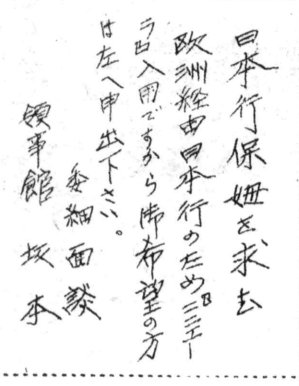 日本行保姆を求む
欧洲経由日本行のためニュエー
ラ一入用ですから御希望の方
は左へ申出下さい。
委細面談
領事館 坂本